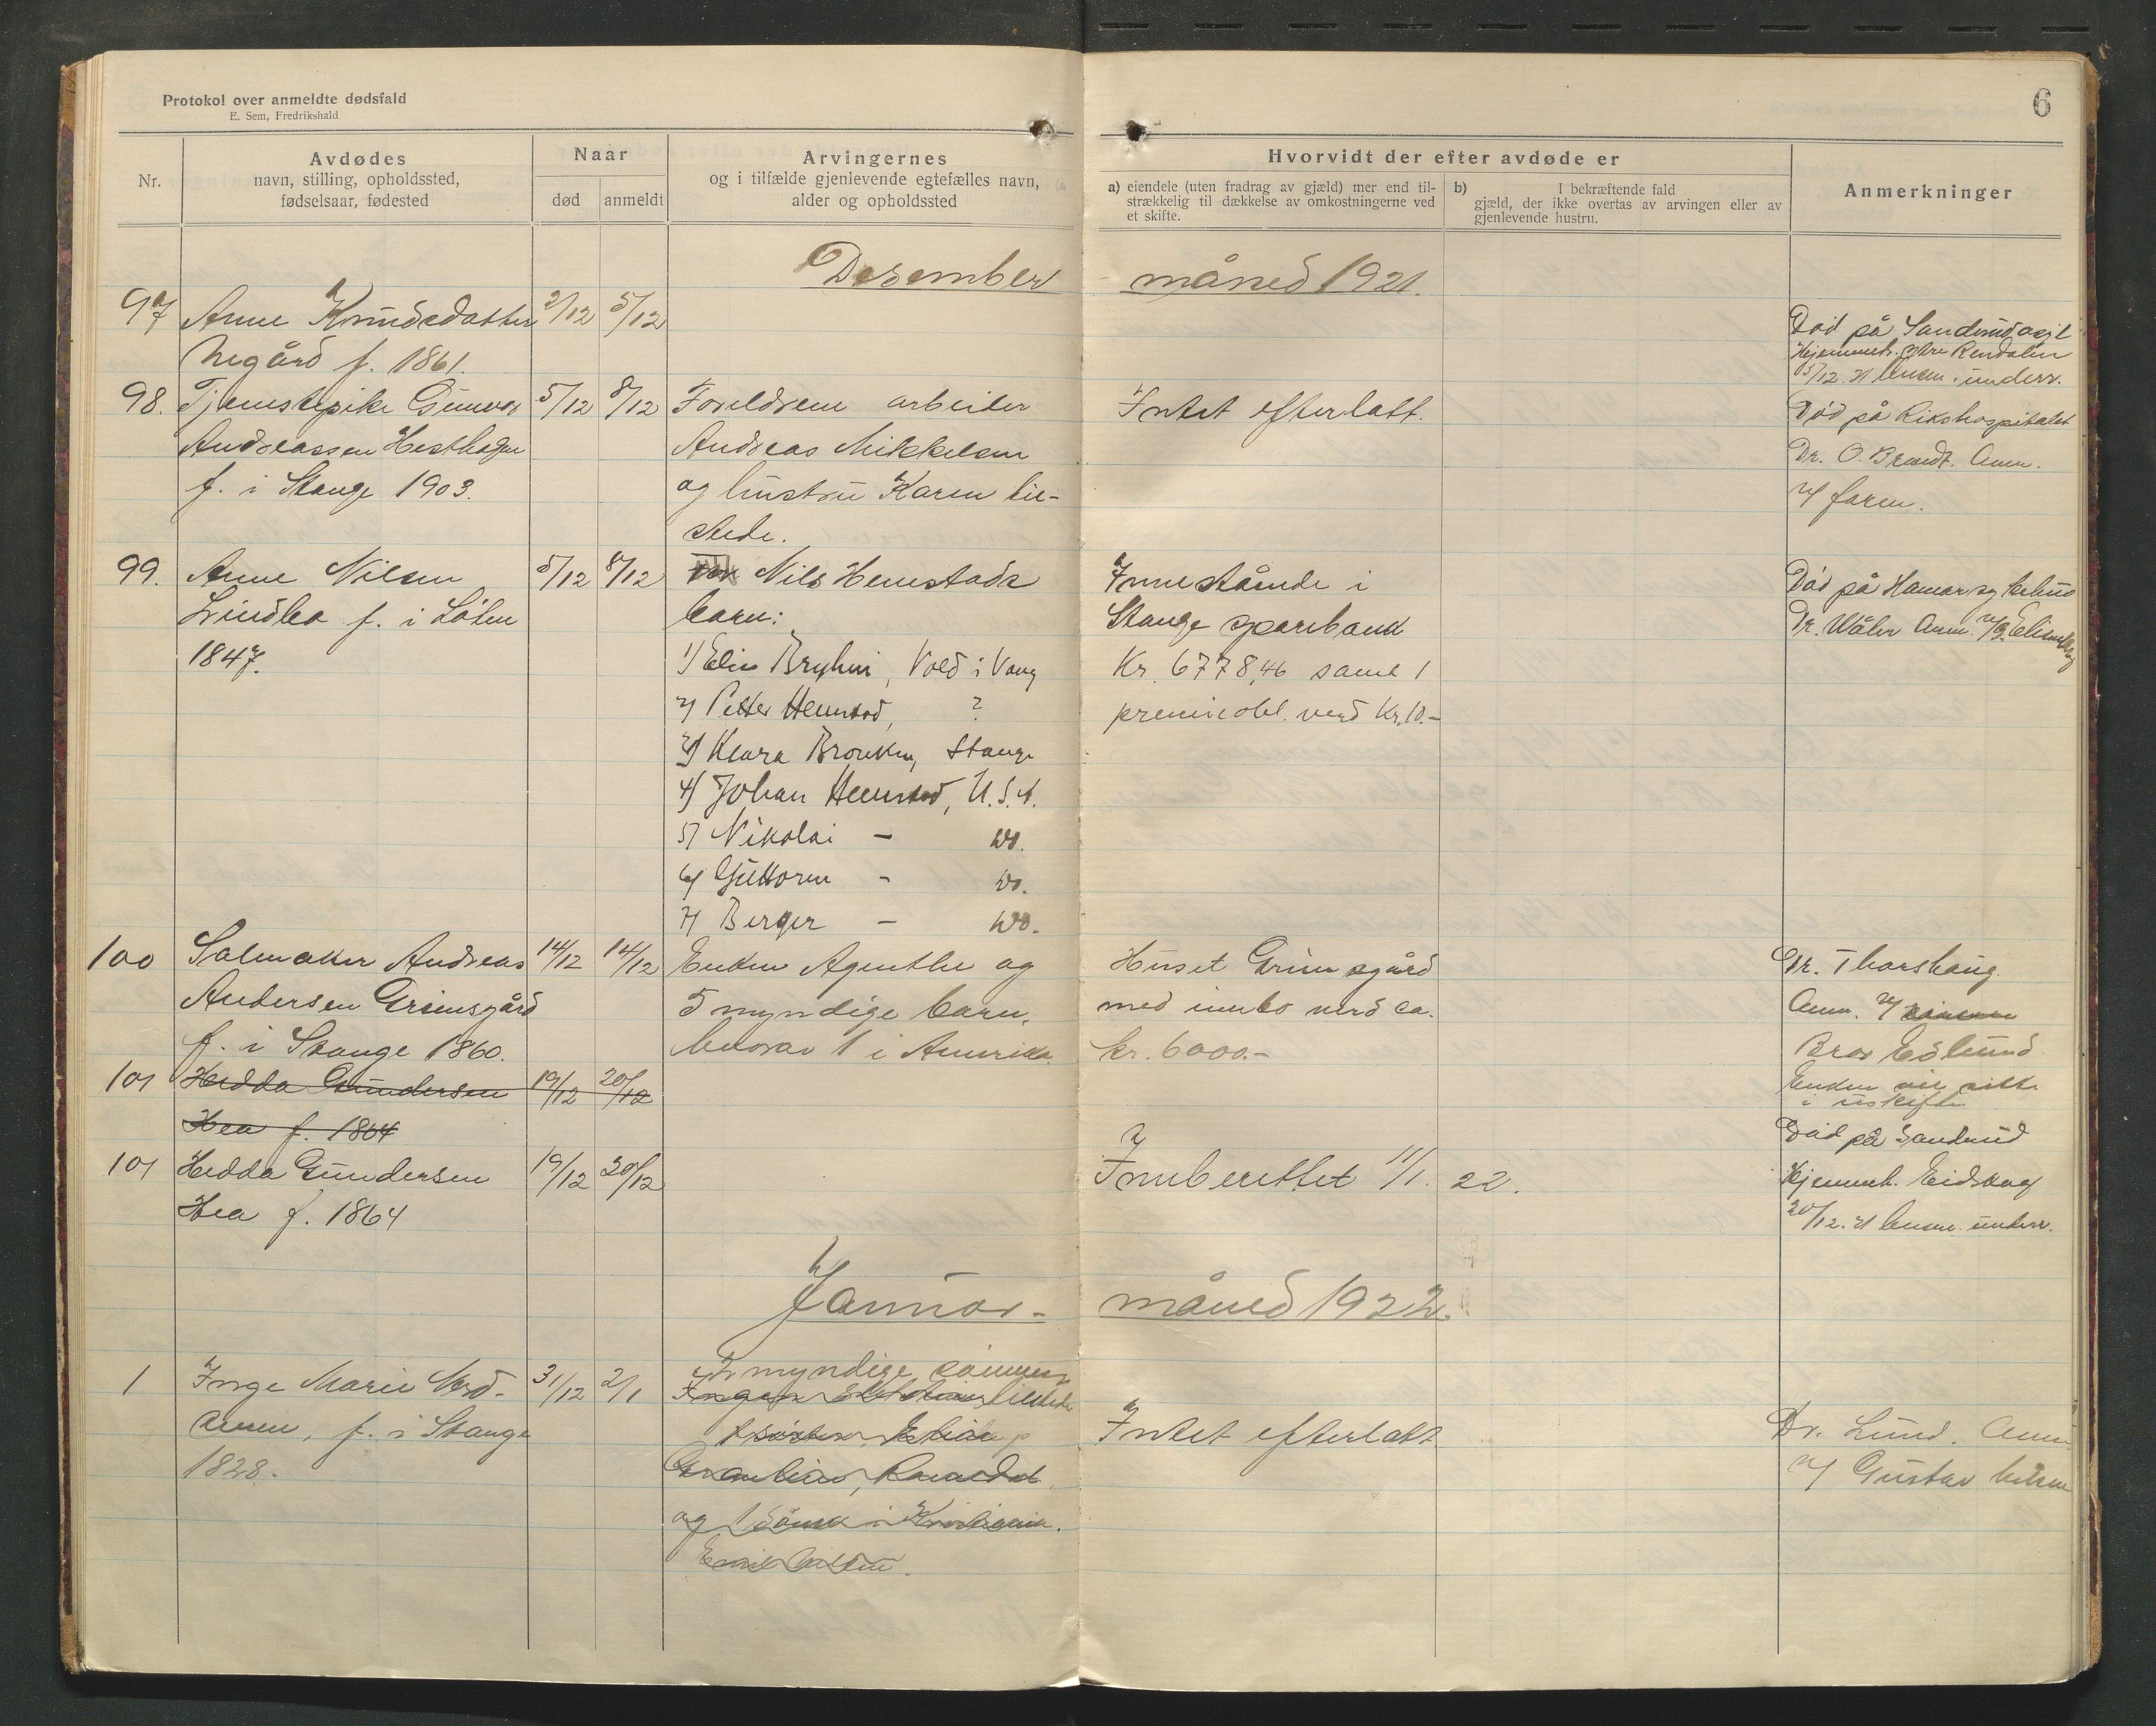 Protokol over anmeldte dødsfald
E. Sem, Fredrikshald
6
Nr.
Avdødes
navn, stilling, opholdssted,
fødselsaar, fødested
Naar
død
anmeldt
Arvingernes
og i tilfælde gjenlevende egtefælles navn,
alder og opholdssted
Hvorvidt der efter avdøde er
a) eiendele (uten fradrag av gjæld) mer end til-
strækkelig til dækkelse av omkostningerne ved
et skifte.
b) I bekræftende fald
gjæld, der ikke overtas av arvingen eller av
gjenlevende hustru.
Anmerkninger
Desember måned 1921.
97 Anne Knudsdatter 2/12 5/12
Negård f. 1861.
Död på Sanderud asyl
Hjemmeh. Ytre Rendalen
5/12.21 lensm. underr.
98. Tjenestepike Gunvor 5/12 8/12 Foreldrene arbeider Intet efterlatt.
Andreassen Hesthagen Andreas Mikkelsen
f. i Stange 1903. og hustru Karen til-
stede.
Död på Rikshospitalet
Dr. O. Brandt. Anm.
v/ faren.
99. Anne Nilsen 5/12 8/12 Nils Hemstads
Lindbo f. i Löten barn:
1847.
1) Elise Bryhni, Vold i Vang
2) Petter Hemstad, ?
3) Klara Brouken, Stange
4) Johan Hemstad, U.S.A.
5) Nikolai - do.
6) Guttorm - do.
7) Berger - do.
Innestående i
Stange sparebank
Kr. 6778,46 samt 1
premieobl. verd Kr. 10.-
Död på Hamar sykehus
Dr. Wåler Anm. v/
100 Salmaker Andreas 14/12 14/12 Enken Agenthe og Huset Grimsgård
Andersen Grimsgård 5 myndige barn, med innbo verd ca.
f. i Stange 1860. hvorav 1 i Amerika. kr. 6000.-
Dr. Thorshaug.
Anm. v/
Bror Edlund
Enken vil sitte
i uskifte.
101 Hedda Gundersen 19/12 20/12
Hea f. 1864
101 Hedda Gundersen 19/12 20/12 Innberettet 11/1. 22.
Hea f. 1864
Död på Sanderud
Hjemmeh. Eidskog
20/12.21 lensm. underr.
Januar- måned 1922.
1 Inge Marie Nord- 31/12 2/1 2 myndige sönner
f. i Stange
1828.
tilstede
og 1 sönn i Kristiania.
Emil Nilsen.
Intet efterlatt.
Dr. Lund. Anm.
v/ Gustav Nilsen